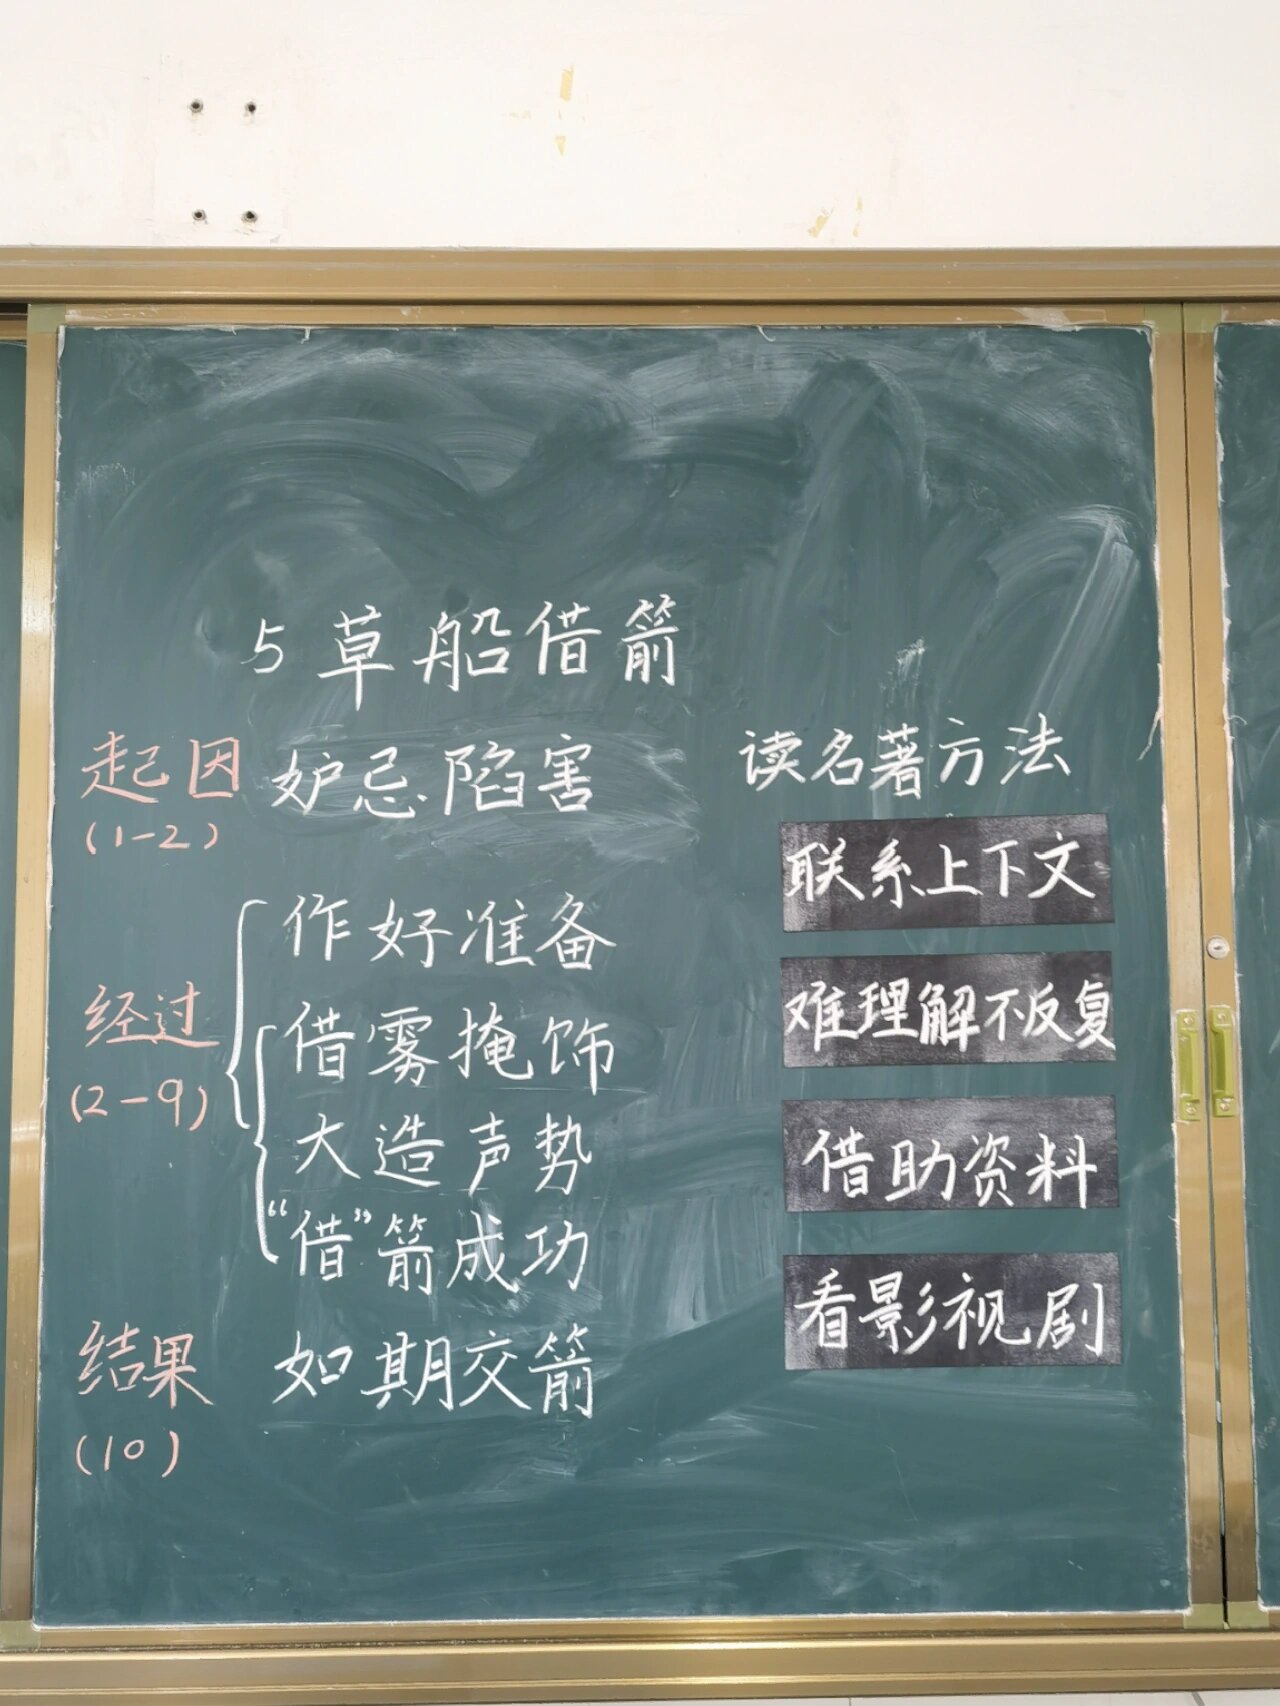 5 草船借箭
起因 妒忌陷害
(1-2)
作好准备
经过
(2-9)
借雾掩饰
大造声势
“借”箭成功
结果 如期交箭
(10)
读名著方法
联系上下文
难理解不反复
借助资料
看影视剧